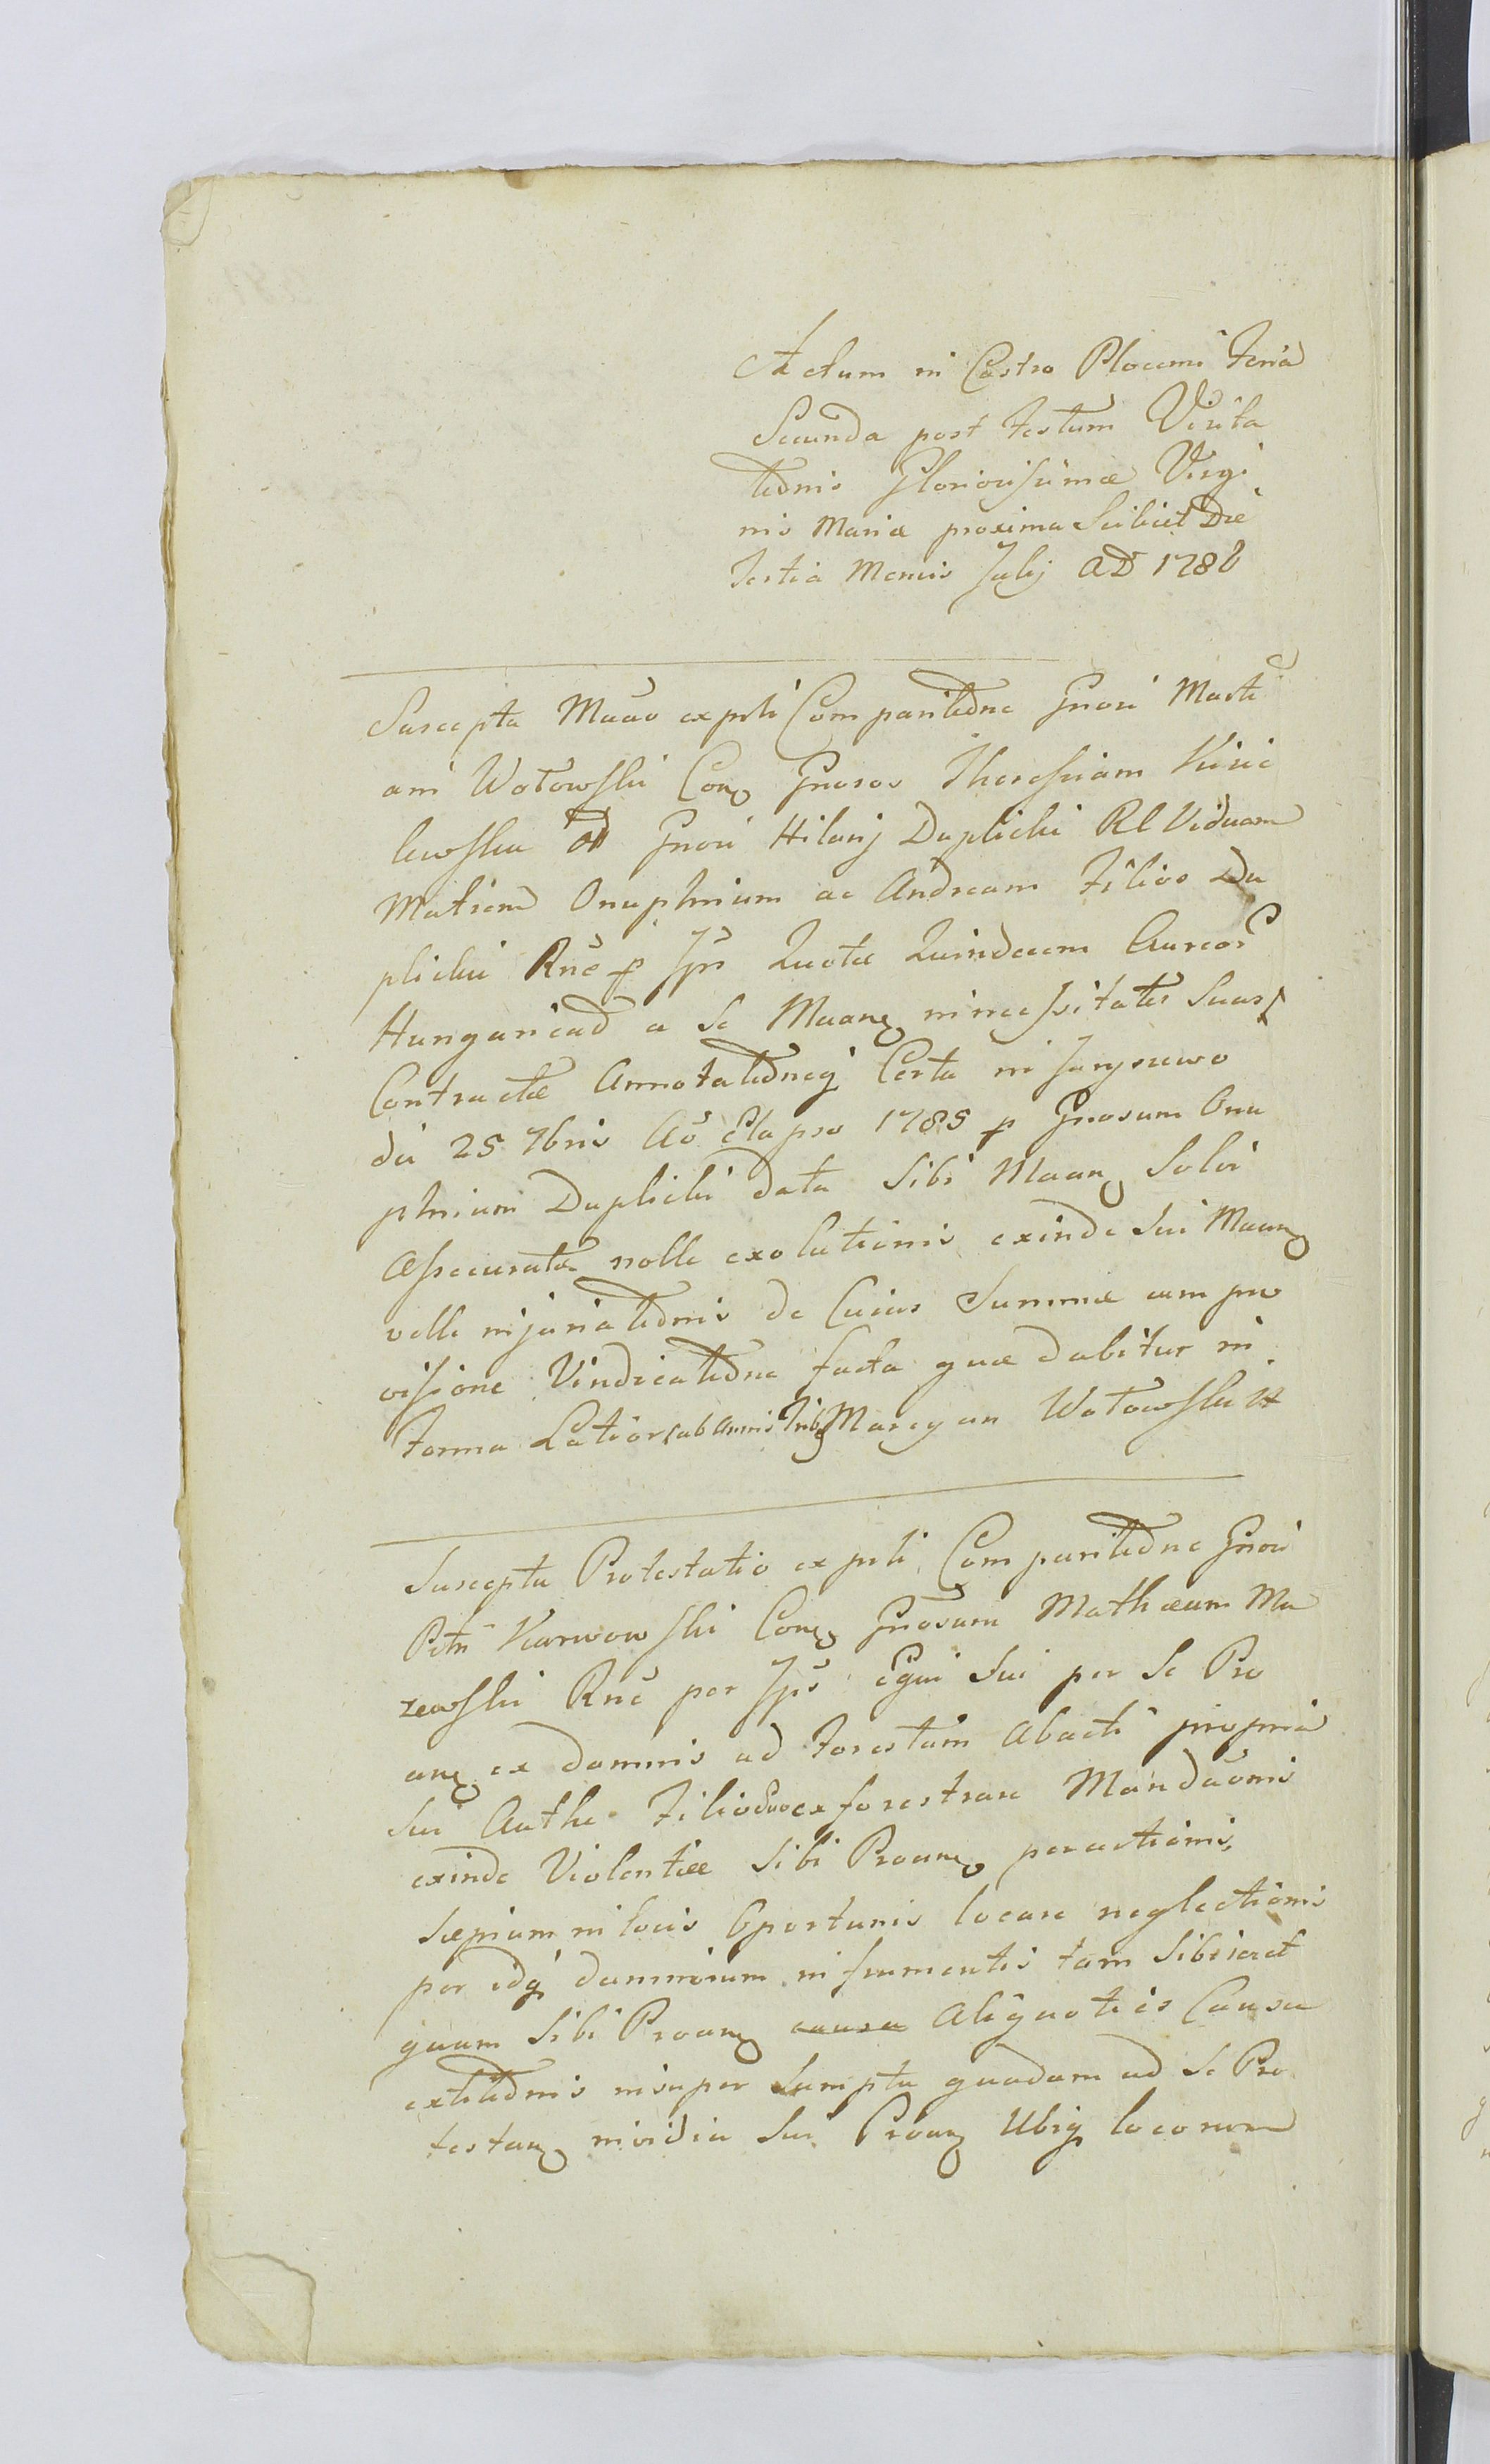 Actum in Castro Plocensi Feria
Secunda post Festum Visita
tionis Gloriosissimæ Virgi
nis Mariæ proxima Scilicet Die
Tertia Mensis Julij AD 1786
Suscepta Mãao ex psti Comparitione Gnosi Marti
ani Wotowski Conq Gnosos Theressiam Kisie
lewska Gnosi Hilarij Duplicki Rl Viduam
Matrem Onuphrium ac Andream Filios Du
plickie Rne p Jps Quotæ Quindecem Aureor
Hungaricad a Se Maanq in necessitates Suas
Contractæ Annotationeq Certa in
die 25 7bris Aõ Elapso 1785 p Gnosum Onu
phrium Duplicki data Sibi Maanq Solvi
Assecuratæ nolle exolutionis exinde Sui Maanq
velle injuriationis de Cuius Summæ cum pro
visione Vindicatione facta quæ dabitur in
Forma Latiori sub Annis Tribq Marcyan Wotowski
Suscepta Protestatio ex psti Comparitione Gnosi
Petri Karwowski Conq Gnosum Mathæum Ma
zewski Rnẽ per Jps Equi Sui per Se Pro
anq ex damnis ad Forestam Abacti propria
Sui Autho Filio suo exforestrare Mandãonis
exinde Violentiæ Sibi Proanq peractionis,
Sæpium in locis Oportunis locare neglectionis
per idq damnorum in frumentis tam Sibi
quam Sibi Proanq causa Aliquoties Causa
extitionis insuper Sumpta quadam ad Se Pro
testanq invidia Sui Proanq Ubiq locorum